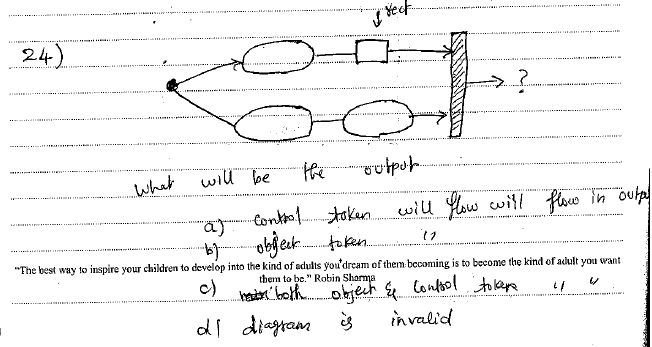 rect
24)
?
What will be the output
a) control token will flow will flow in outpu
b) object token "
"The best way to inspire your children to develop into the kind of adults you'dream of them becoming is to become the kind of adult you want
them to be." Robin Sharma
c) both object & control token " "
d) diagram is invalid